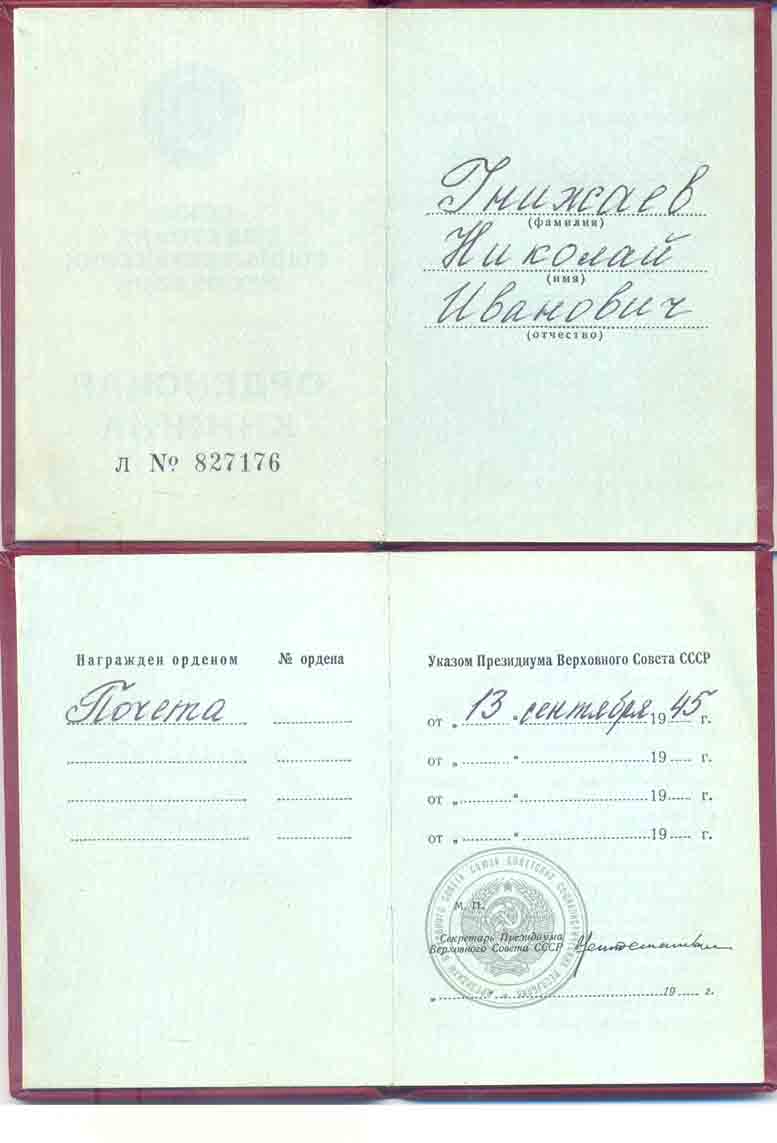 Гнижаев
(фамилия)
Николай
(имя)
Иванович
(отчество)
ОРДЕНСКАЯ
КНИЖКА
Л № 827176
Награжден орденом № ордена
Почета
Указом Президиума Верховного Совета СССР
от „ 13 “ сентября 19 45 г.
от „ “ 19 г.
от „ “ 19 г.
от „ “ 19 г.
М. П.
Секретарь Президиума
Верховного Совета СССР
„ 19 г.